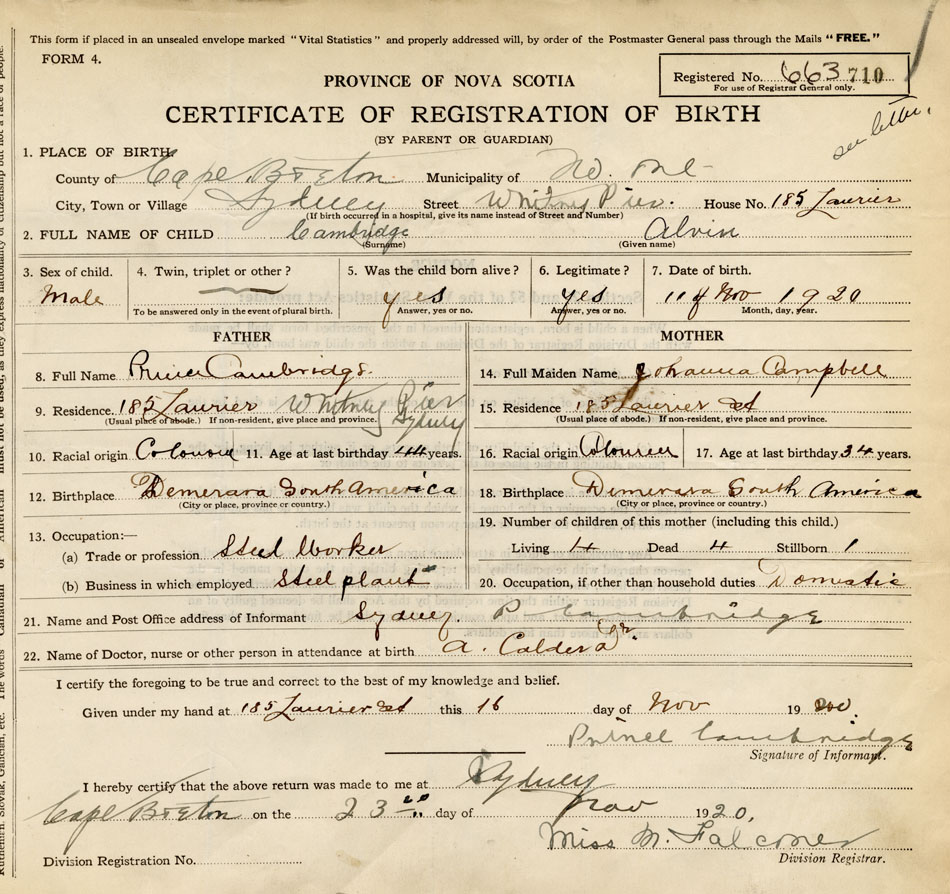 This form if placed in an unsealed envelope marked "Vital Statistics" and properly addressed will, by order of the Postmaster General pass through the Mails "FREE."
FORM 4.
Registered No. 663 710
For use of Registrar General only.
PROVINCE OF NOVA SCOTIA
CERTIFICATE OF REGISTRATION OF BIRTH
see letter.
(BY PARENT OR GUARDIAN)
1. PLACE OF BIRTH
County of Cape Breton Municipality of
City, Town or Village Sydney Street Whitney Pier. House No. 185 Laurier
(If birth occurred in a hospital, give its name instead of Street and Number)
2. FULL NAME OF CHILD Cambridge Alvin
(Surname) (Given name)
3. Sex of child. 4. Twin, triplet or other? 5. Was the child born alive? 6. Legitimate? 7. Date of birth.
Male yes yes 11 Nov 1920
To be answered only in the event of plural birth. Answer, yes or no. Answer, yes or no. Month, day, year.
FATHER MOTHER
8. Full Name Cambridge. 14. Full Maiden Name Johanna Campbell
9. Residence. 185 Laurier Whitney Pier Sydney 15. Residence 185 Laurier St
(Usual place of abode.) If non-resident, give place and province. (Usual place of abode.) If non-resident, give place and province.
10. Racial origin 11. Age at last birthday 44 years. 16. Racial origin 17. Age at last birthday 34 years.
12. Birthplace Demerara South America 18. Birthplace Demerara South America
(City or place, province or country.) (City or place, province or country.)
13. Occupation:— 19. Number of children of this mother (including this child.)
(a) Trade or profession Steel Worker Living 4 Dead 4 Stillborn 1
(b) Business in which employed Steel plant 20. Occupation, if other than household duties Domestic
21. Name and Post Office address of Informant Sydney. P Cambridge
22. Name of Doctor, nurse or other person in attendance at birth A. Calder Dr.
I certify the foregoing to be true and correct to the best of my knowledge and belief.
Given under my hand at 185 Laurier St this 16 day of Nov 19
Prince Cambridge
Signature of Informant.
I hereby certify that the above return was made to me at Sydney
Cape Breton on the 23 day of Nov 1920.
Miss M. Falconer
Division Registration No. Division Registrar.